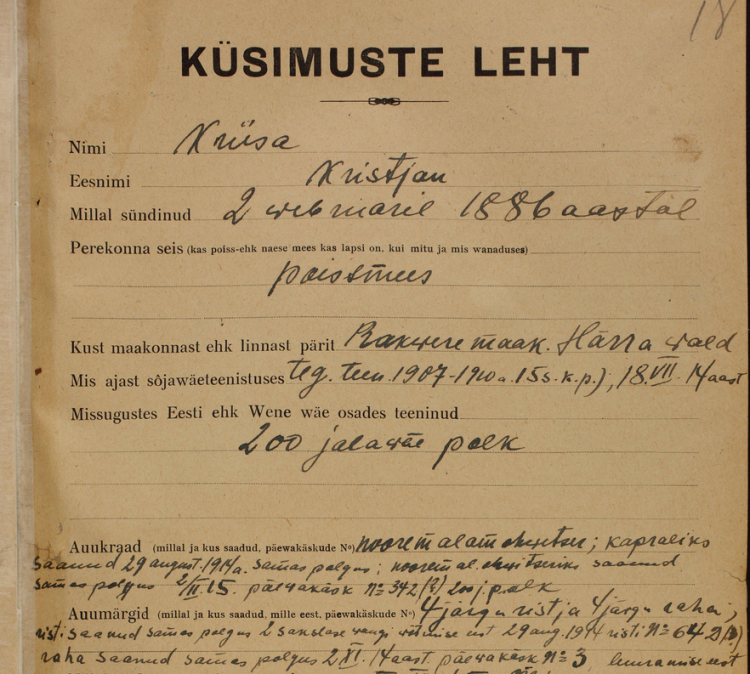 18
KÜSIMUSTE LEHT
Nimi Kriisa
Eesnimi Kristjan
Millal sündinud 2 webruaril 1886 aastal
Perekonna seis (kas poiss-ehk naese mees kas lapsi on, kui mitu ja mis wanaduses)
poissmees
Kust maakonnast ehk linnast pärit Rakwere maak. Härra wald
Mis ajast sõjawäeteenistuses teg. teen. 1907-1910 a. 15 s.k.p.), 18.VII.14 aast
Missugustes Eesti ehk Wene wäe osades teeninud
200 jalawäe polk
Auukraad (millal ja kus saadud, päewakäskude №) noorem alamohwitser; kapraliks
saanud 29 august 1914 a. samas polgus; noorem al. ohwitseriks saanud
samas polgus 2/II.15. päewakäsk № 342 (?) 200 j. polk
Auumärgid (millal ja kus saadud, mille eest, päewakäskude №) 4 järgu rist ja 4 järgu raha;
risti saanud samas polgus 2 sakslase wangi wõtmise eest 29 aug. 1914 risti № 642(?)
raha saanud samas polgus 2 XI. 14 aast. päewakäsk № 3, luuramise eest